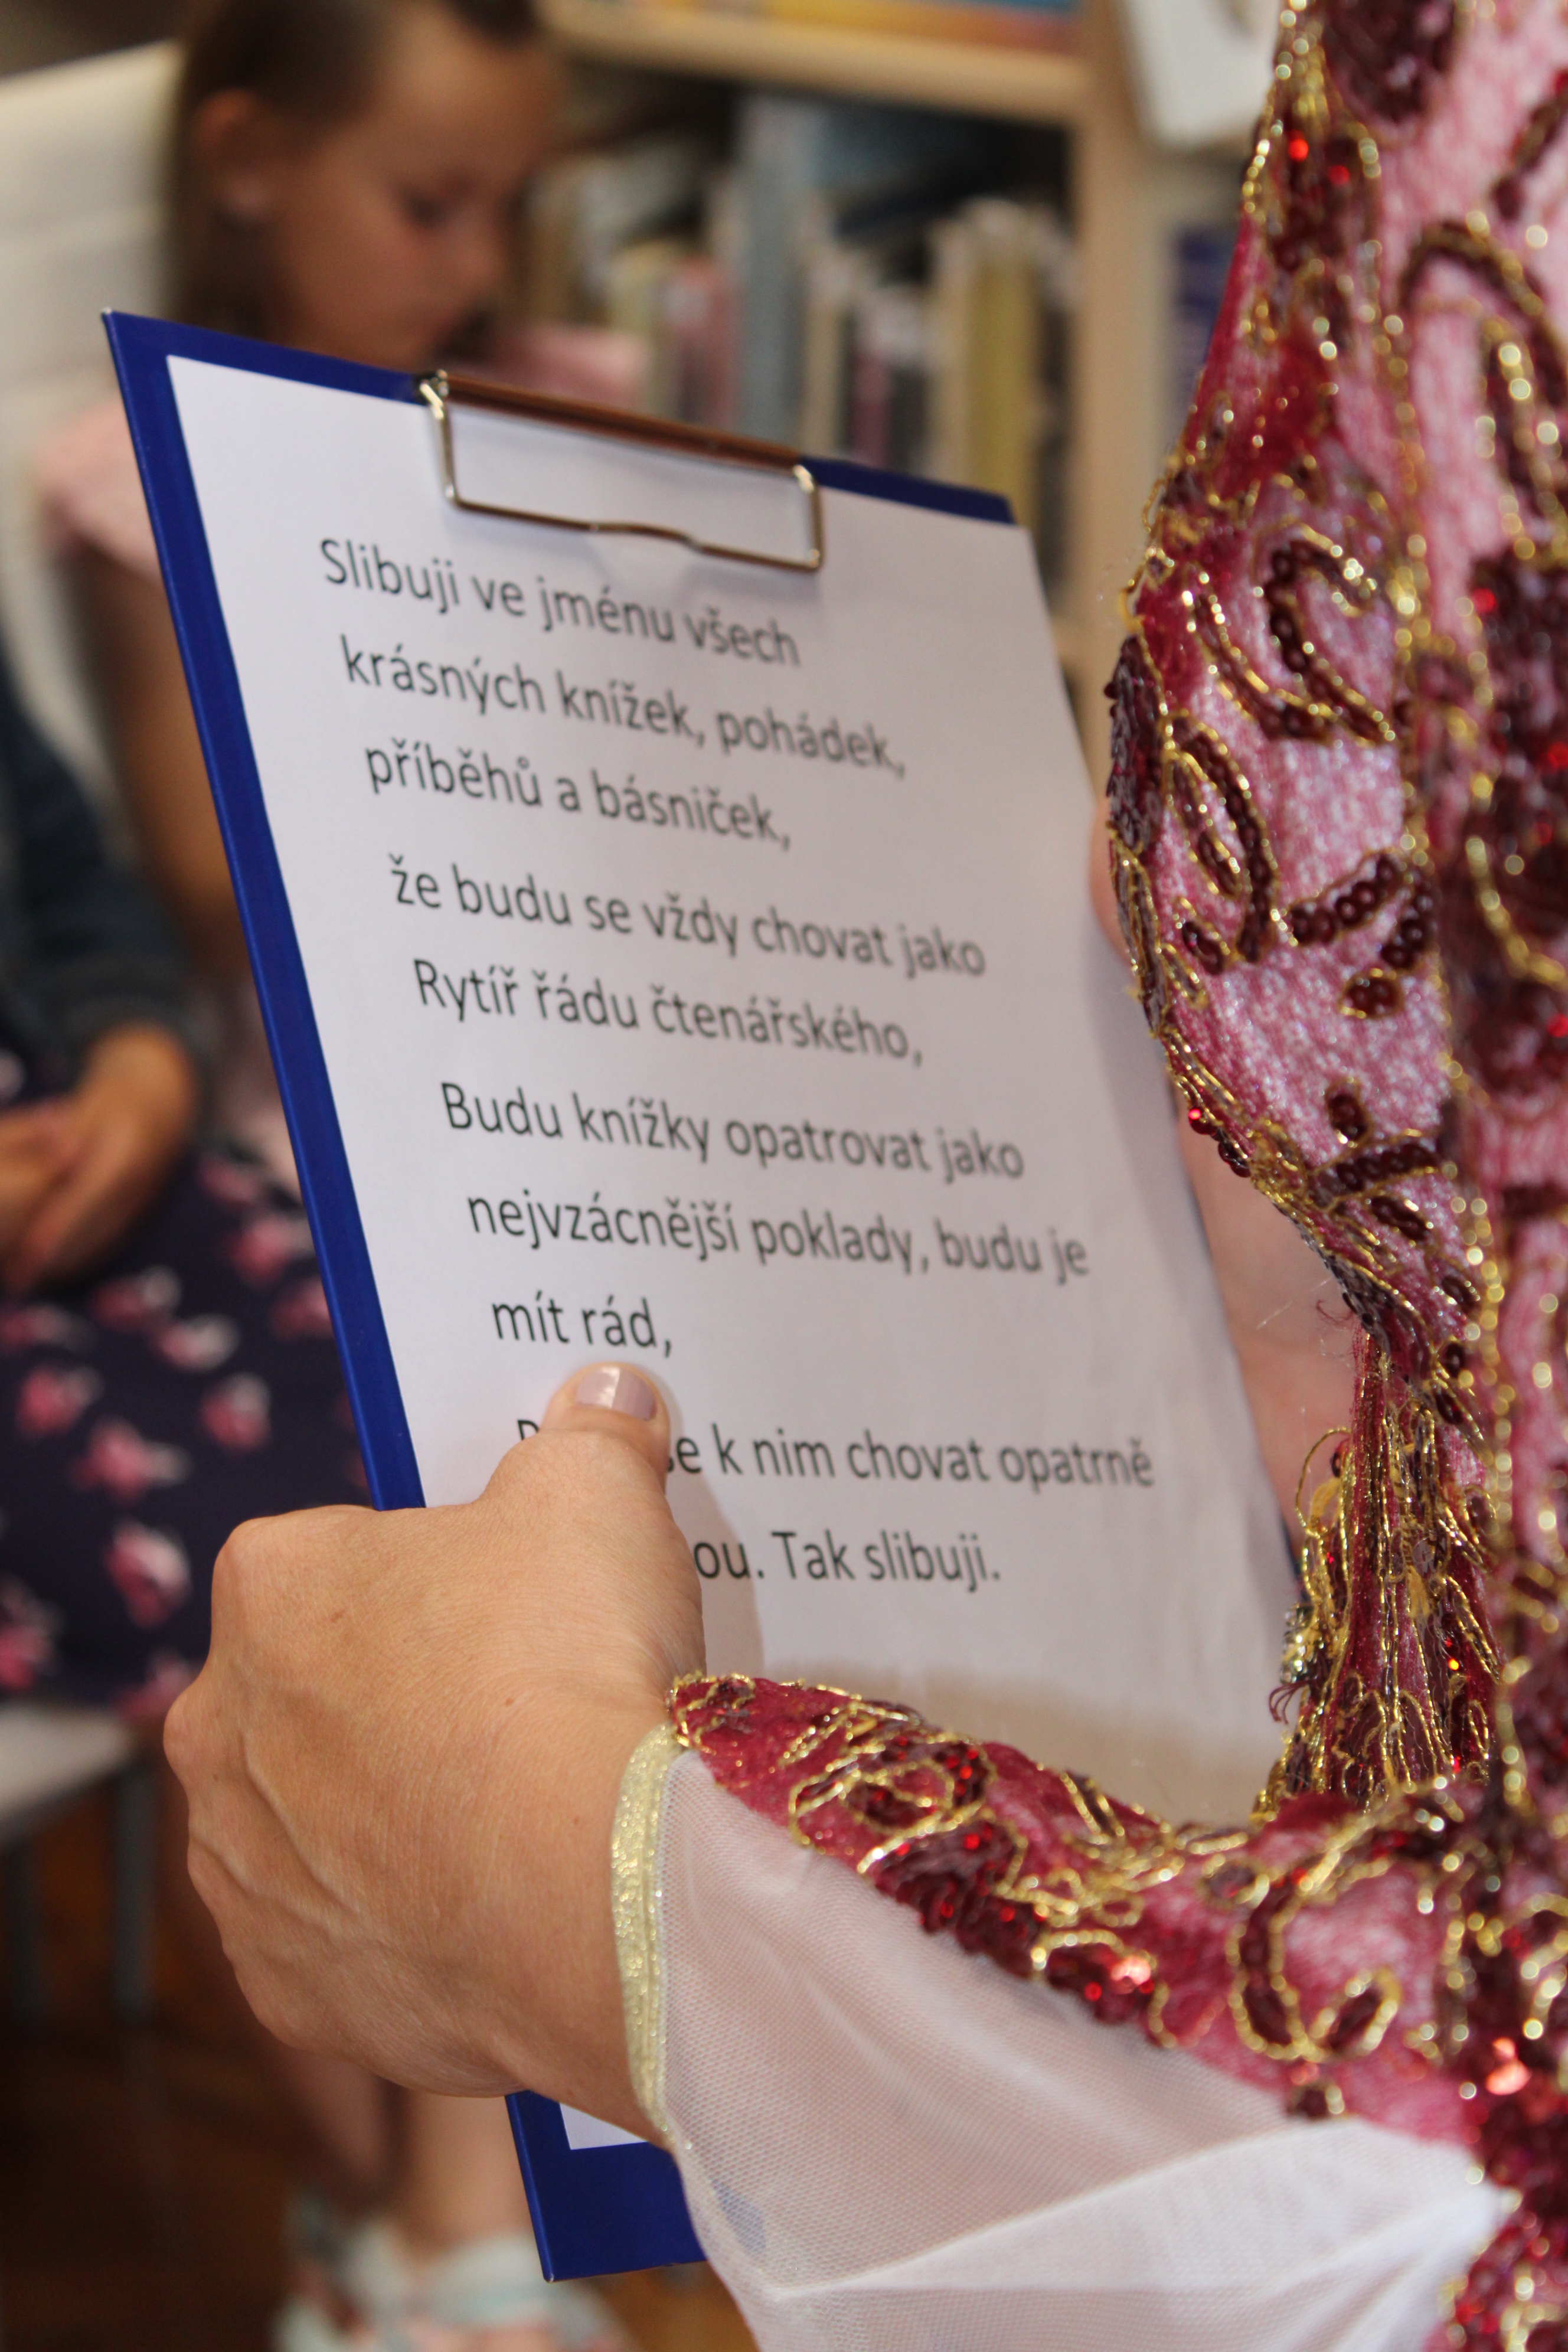 Slibuji ve jménu všech
krásných knížek, pohádek,
příběhů a básniček,
že budu se vždy chovat jako
Rytíř řádu čtenářského,
Budu knížky opatrovat jako
nejvzácnější poklady, budu je
mít rád,
se k nim chovat opatrně
Tak slibuji.